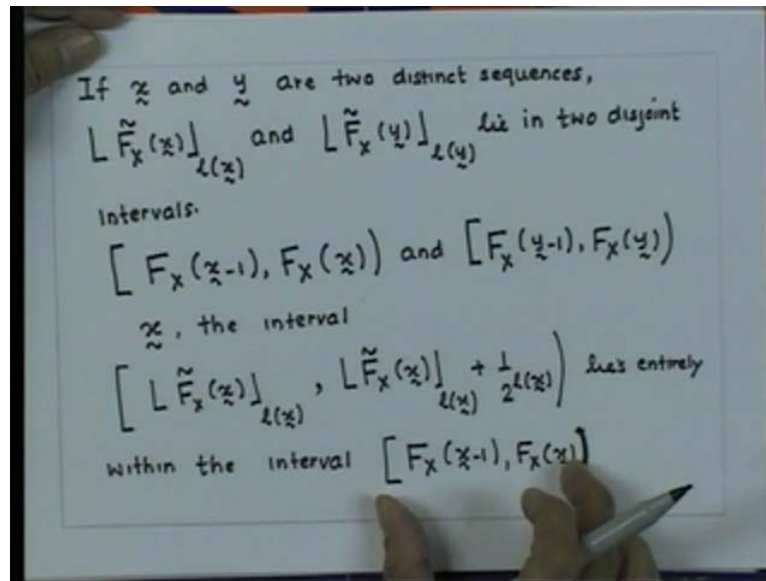 If x̰ and y̰ are two distinct sequences,
⌊F̃_X(x̰)⌋_l(x̰) and ⌊F̃_X(y̰)⌋_l(y̰) lie in two disjoint
intervals.
[F_X(x̰-1), F_X(x̰)) and [F_X(y̰-1), F_X(y̰))
x̰, the interval
[⌊F̃_X(x̰)⌋_l(x̰), ⌊F̃_X(x̰)⌋_l(x̰) + 1/2^l(x̰)) lies entirely
within the interval [F_X(x̰-1), F_X(x̰)]